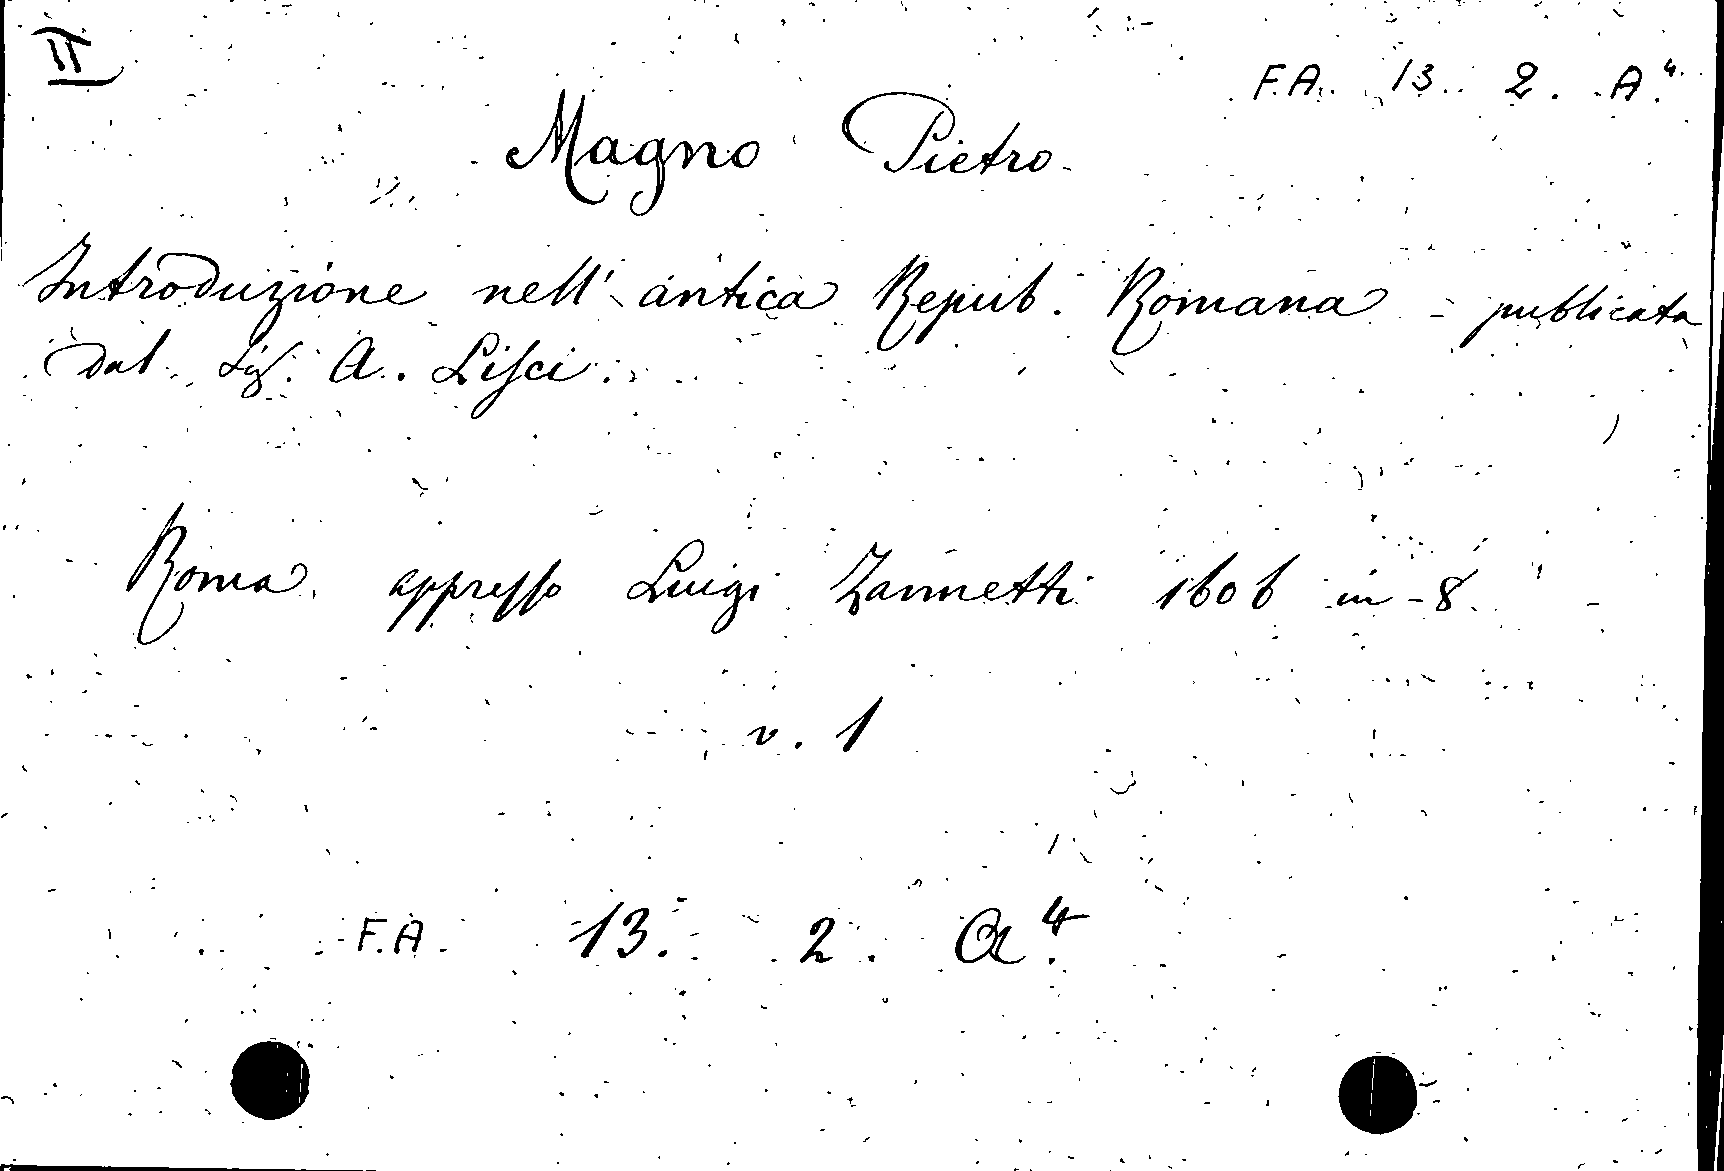 II
F.A. 13. 2. A⁴.
Magno Pietro
Introduzione nell' antica Repub. Romana - publicata
dal Sig. A. Lisci.
Roma appresso Luigi Zannetti 1606 in-8
v. 1
F.A. 13. 2. A⁴.